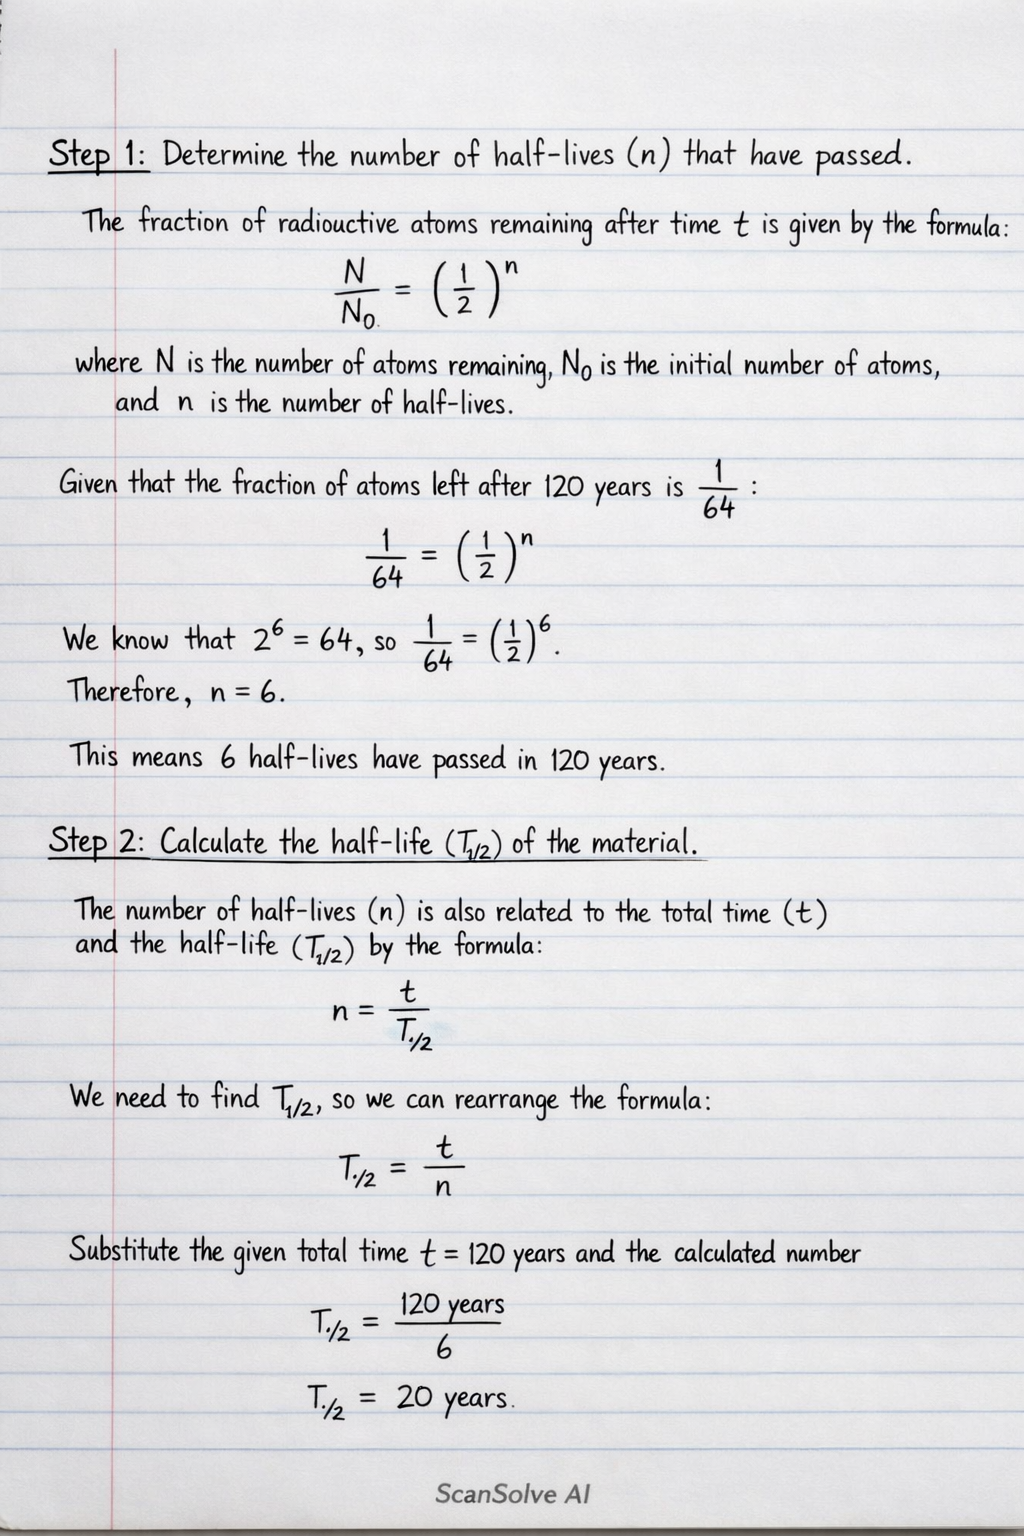 Step 1: Determine the number of half-lives (n) that have passed.
The fraction of radiouctive atoms remaining after time t is given by the formula:
N/N₀ = (1/2)ⁿ
where N is the number of atoms remaining, N₀ is the initial number of atoms,
and n is the number of half-lives.
Given that the fraction of atoms left after 120 years is 1/64 :
1/64 = (1/2)ⁿ
We know that 2⁶ = 64, so 1/64 = (1/2)⁶.
Therefore, n = 6.
This means 6 half-lives have passed in 120 years.
Step 2: Calculate the half-life (T₁/₂) of the material.
The number of half-lives (n) is also related to the total time (t)
and the half-life (T₁/₂) by the formula:
n = t/T₁/₂
We need to find T₁/₂, so we can rearrange the formula:
T₁/₂ = t/n
Substitute the given total time t = 120 years and the calculated number
T₁/₂ = 120 years/6
T₁/₂ = 20 years.
ScanSolve AI